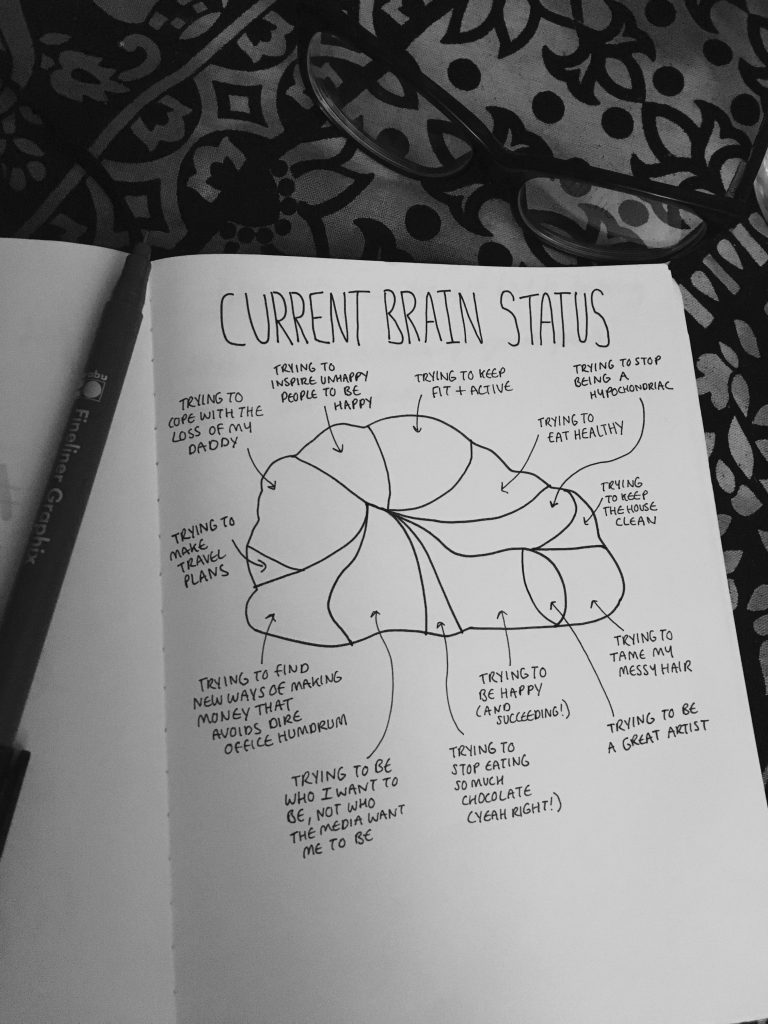 CURRENT BRAIN STATUS
TRYING TO
COPE WITH THE
LOSS OF MY
DADDY
TRYING TO
INSPIRE UNHAPPY
PEOPLE TO BE
HAPPY
TRYING TO KEEP
FIT + ACTIVE
TRYING TO STOP
BEING A
HYPOCHONDRIAC
TRYING TO
EAT HEALTHY
TRYING
TO KEEP
THE HOUSE
CLEAN
TRYING TO
MAKE
TRAVEL
PLANS
TRYING TO FIND
NEW WAYS OF MAKING
MONEY THAT
AVOIDS DIRE
OFFICE HUMDRUM
TRYING TO BE
WHO I WANT TO
BE, NOT WHO
THE MEDIA WANT
ME TO BE
TRYING TO
STOP EATING
SO MUCH
CHOCOLATE
(YEAH RIGHT!)
TRYING TO
BE HAPPY
(AND
SUCCEEDING!)
TRYING TO BE
A GREAT ARTIST
TRYING TO
TAME MY
MESSY HAIR
Fineliner Graphix